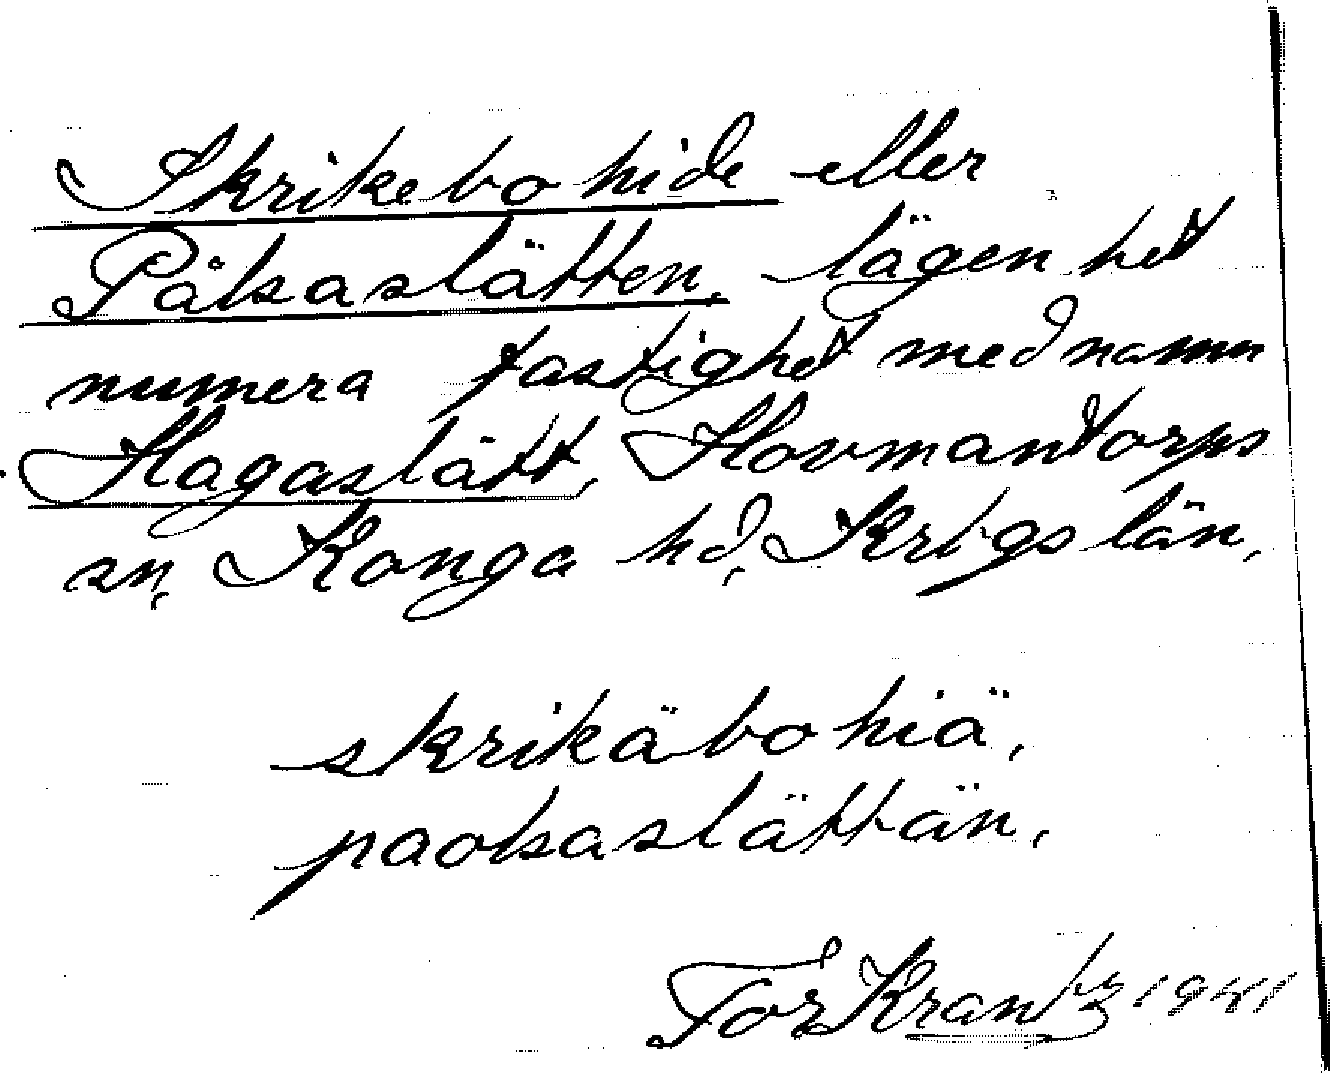 Skrikebohide eller
Påksaslätten, lägenhet
numera fastighet med namn
Hagaslätt, Hovmantorps
sn, Konga hd, Krbgs län,
skrikäbohiä,
paoksaslättän,
Tor Krantz 1941